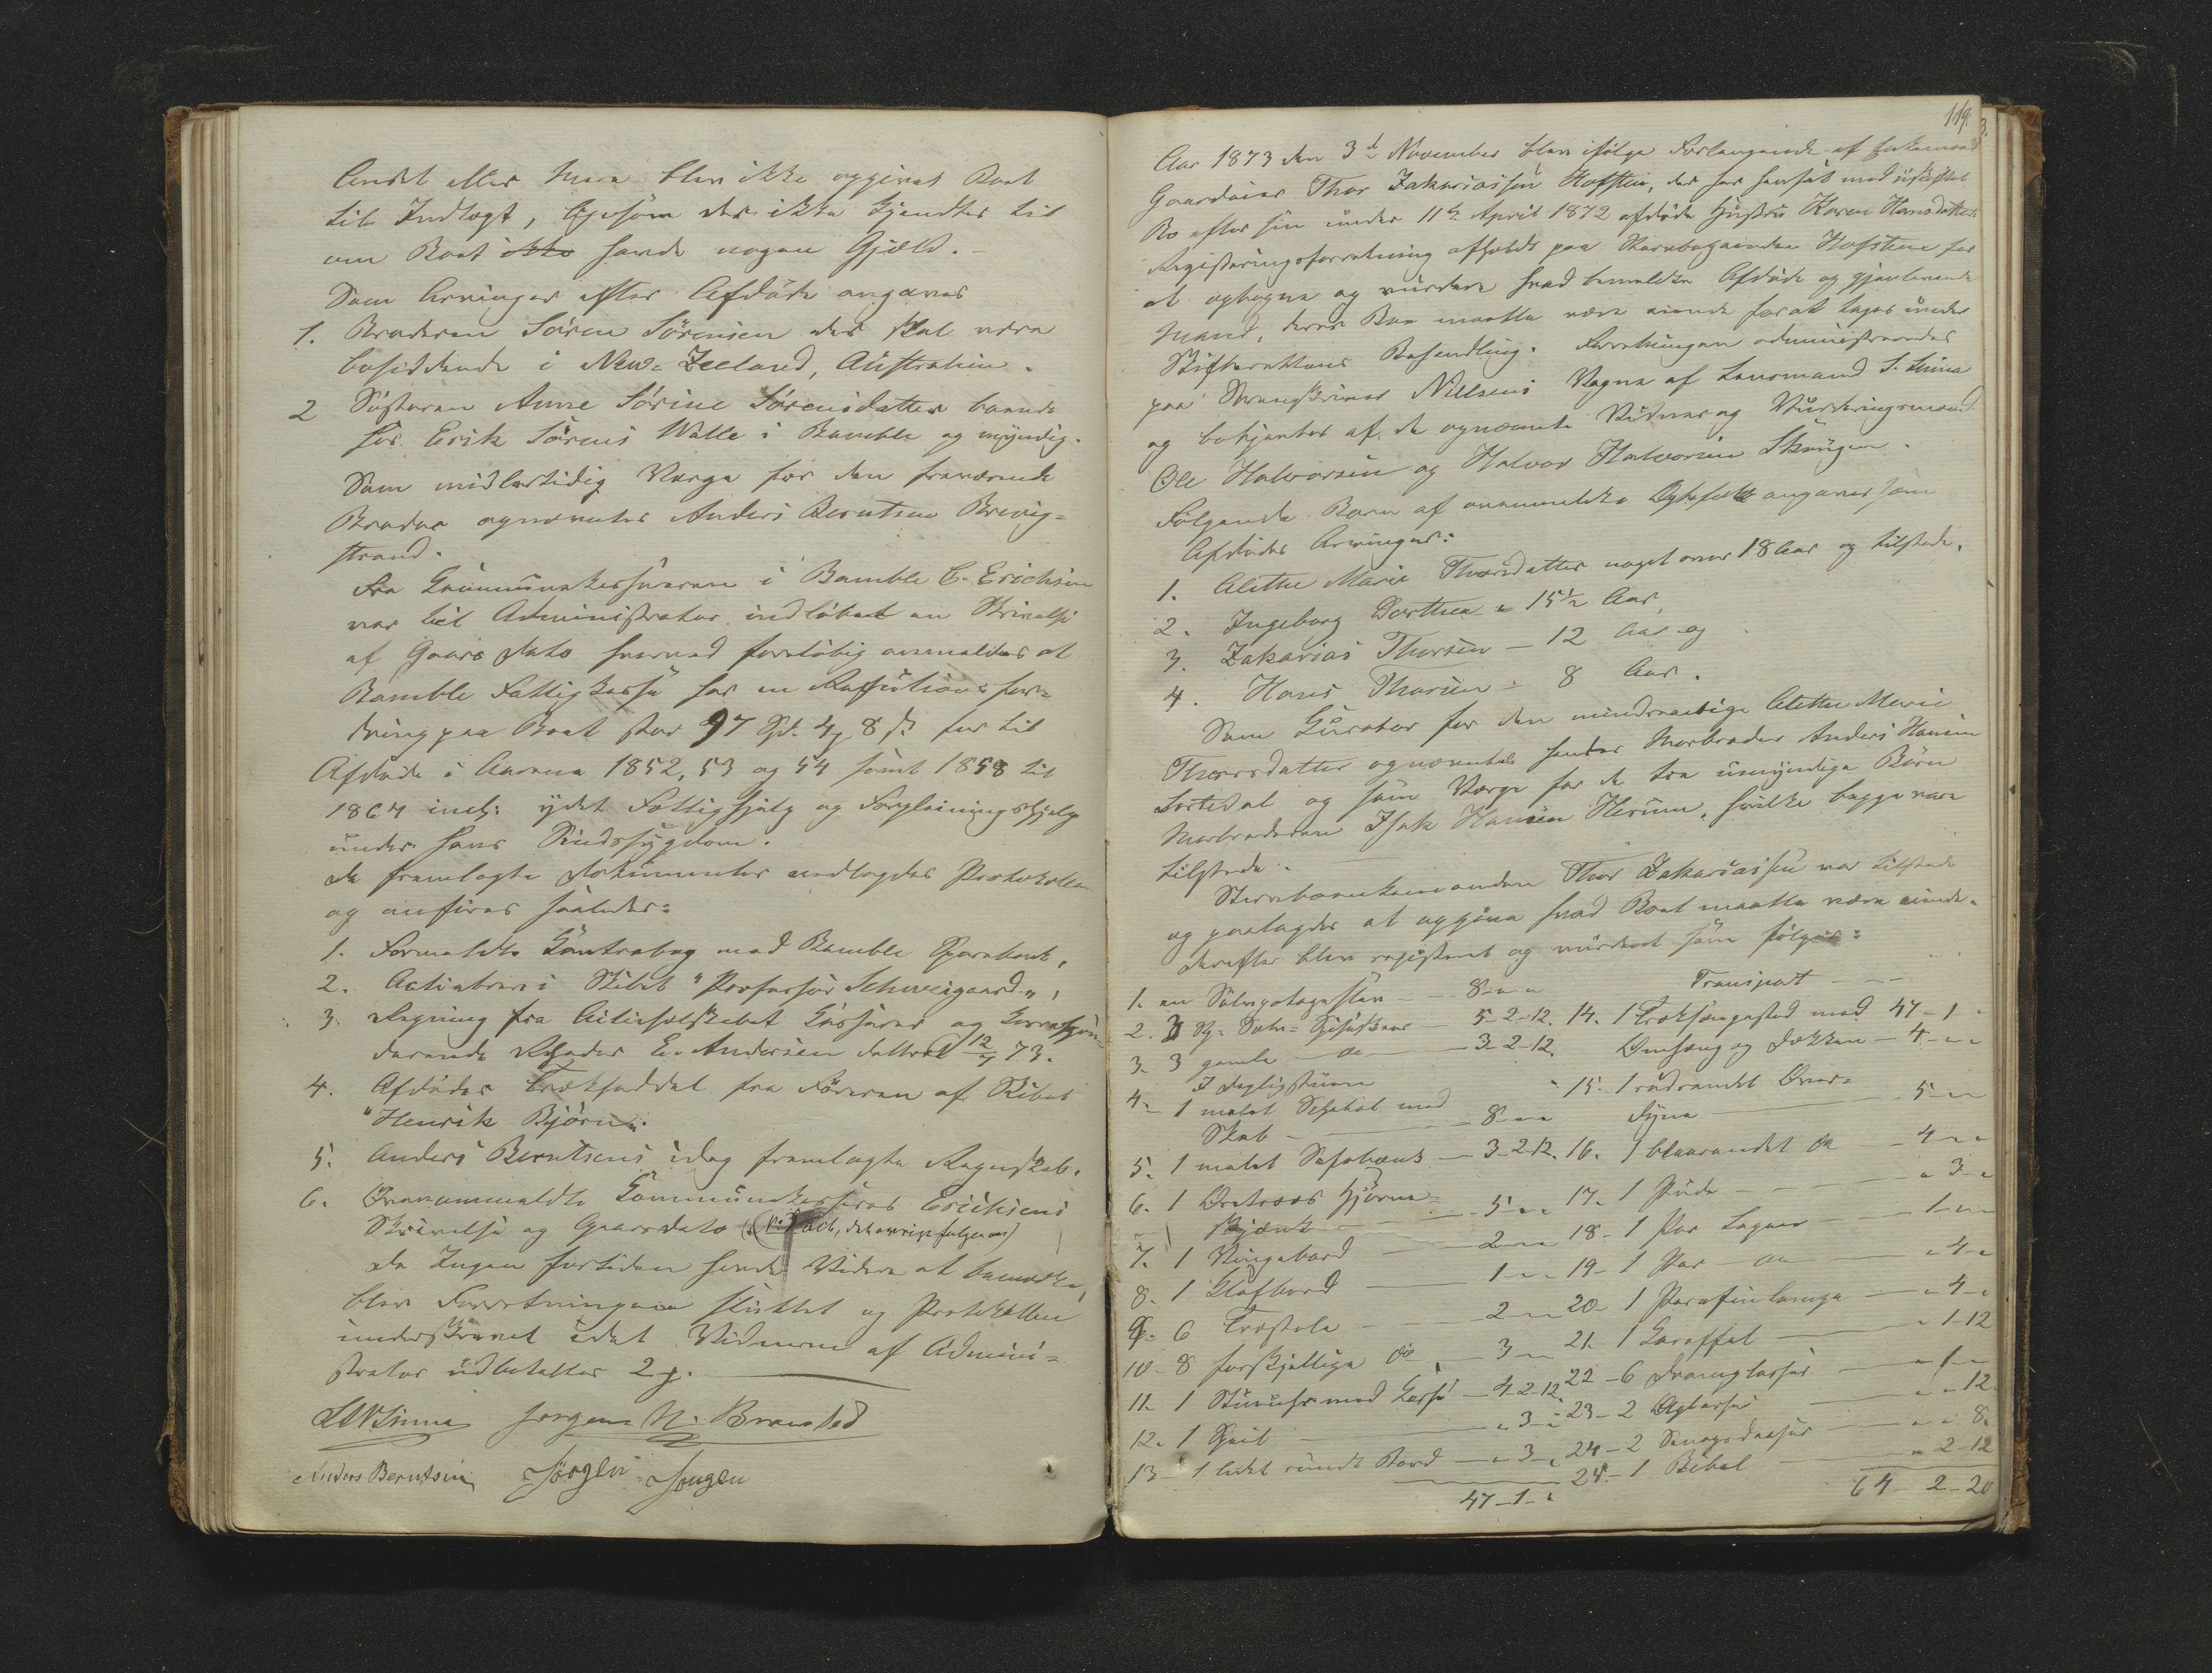 Andet eller Mere blev ikke opgivet Boet
til Indtægt, ligesom der ikke kjendtes til
om Boet ikke havde nogen Gjæld.
Som Arvinger efter Afdøde angaves
1. Broderen Søren Sørensen der skal være
bosiddende i New-Zeeland, Australien.
2 Søsteren Anne Sørine Sørensdatter boende
hos Erik Sørens Walle i Bamble og myndig.
Som midlertidig Værge for den fraværende
Broder opnævntes Anders Berntsen Brevig-
strand.
Fra Communekassereren i Bamble C. Erichsen
var til Administrator indløbet en Skrivelse
af Gaars Dato hvorved foreløbig anmeldes at
Bamble Fattigkasse har en Refusionsfor-
dring paa Boet stor 97 Spd. 4 8 s. for til
Afdøde i Aarene 1852, 53 og 54 samt 1858 til
1864 incl: ydet Fattighjælp og Forpleiningshjælp
under hans Sindssygdom.
De fremlagte Dokumenter vedlagdes Protokollen
og anføres saaledes:
1. Formeldte Contrabog med Bamble Sparebank,
2. Actiebrev i Skibet "Professor Schweigaard",
3. Regning fra Actieselskabet Casserer og Correspon-
derende Rheder E. Andersen dateret 12/7 73.
4. Afdødes Trækseddel fra Føreren af Skibet
"Henrik Bjørn".
5. Anders Berntsens idag fremlagte Regnskab.
6. Ovenanmeldte Communekasserer Erichsens
Skrivelse og Gaarsdato (det øvrige følger)
Da Ingen fortiden havde Videre at bemærke,
blev Forretningen sluttet og Protokollen
underskrevet idet Vidnerne af Admini-
strator udbetaltes 2
Jorgen N. Bronstad
Anders Berntsen Jørgen Jorgen
119.
Aar 1873 den 3d November blev ifølge Forlangende af Enkemand
Gaardeier Thor Zakariassen Hafsten, der har hensat med uskiftet
Bo efter sin under 11te April 1872 afdøde Hustru Karen Hansdatter
Registreringsforretning afholdt paa Stervbogaarden Hafsten for
at optegne og vurdere hvad bemeldte Afdøde og gjenlevende
Mand, deres Boe maatte være eiende for at tages under
Skifterettens Behandling. Forretningen administreredes
paa Sorenskriver Nielsens Vegne af Lensmand S. Sinnes
og betjentes af de opnævnte Vidner og Vurderingsmænd
Ole Halvorsen og Halvor Halvorsen Skougen.
Følgende Børn af ovenmeldte Ægtefolk angaves som
Afdødes Arvinger:
1. Alethe Marie Thorsdatter noget over 18 Aar og tilstede,
2. Ingeborg Dorthea " 15½ Aar,
3. Zakarias Thorsen — 12 Aar og
4. Hans Thorsen - 8 Aar.
Som Curator for den mindreaarige Alethe Marie
Thorsdatter opnævntes hendes Morbroder Anders Hansen
og som Værge for de tre umyndige Børn
Morbroderen Isak Hansen Herum, hvilke begge vare
tilstede.
Stervboenkemanden Thor Zakariassen var tilstede
og paalagdes at opgive hvad Boet maatte være eiende.
Derefter blev registreret og vurderet som følger:
1. en — 8 " "
2. 3 — 5-2-12.
3. 3 gamle do — 3-2-12.
I Dagligstuen
4. 1 malet Schatol med
Skab — 8 " "
5. 1 malet Sofabænk — 3-2-12.
6. 1 Hjørne-
skjænk — 5 " "
7. 1 Klapbord — 2 " "
8. 1 Klafbord — 1 " "
9. 6 Træstole — 2 " "
10 - 8 forskjellige do — 3 " "
11. 1 Stueuhr med Casse — 4-2-12.
12. 1 Speil — " 3 "
13 - 1 lidet rundt Bord — " 3 "
47-1-"
Transport — 47-1 "
14. 1 Træksengested med
Omhæng og Dækken — 4 " "
15. 1 rødrandet Over-
dyne — 5 " "
16. 1 blaarandet do — 4 " "
17. 1 Pude — " 3 "
18 - 1 Par Lagner — 1 " "
19 - 1 Par do — " 4 "
20 - 1 Parafinlampe — " 4 "
21. 1 Caraffel — " 1-12
22 - 6 Dramglasse — " 1 "
23 - 2 Ølglasse — " " 12.
24 - 2 Sennepsdaaser — " " 8.
25. - 1 Bibel — " 2-12
64-2-20